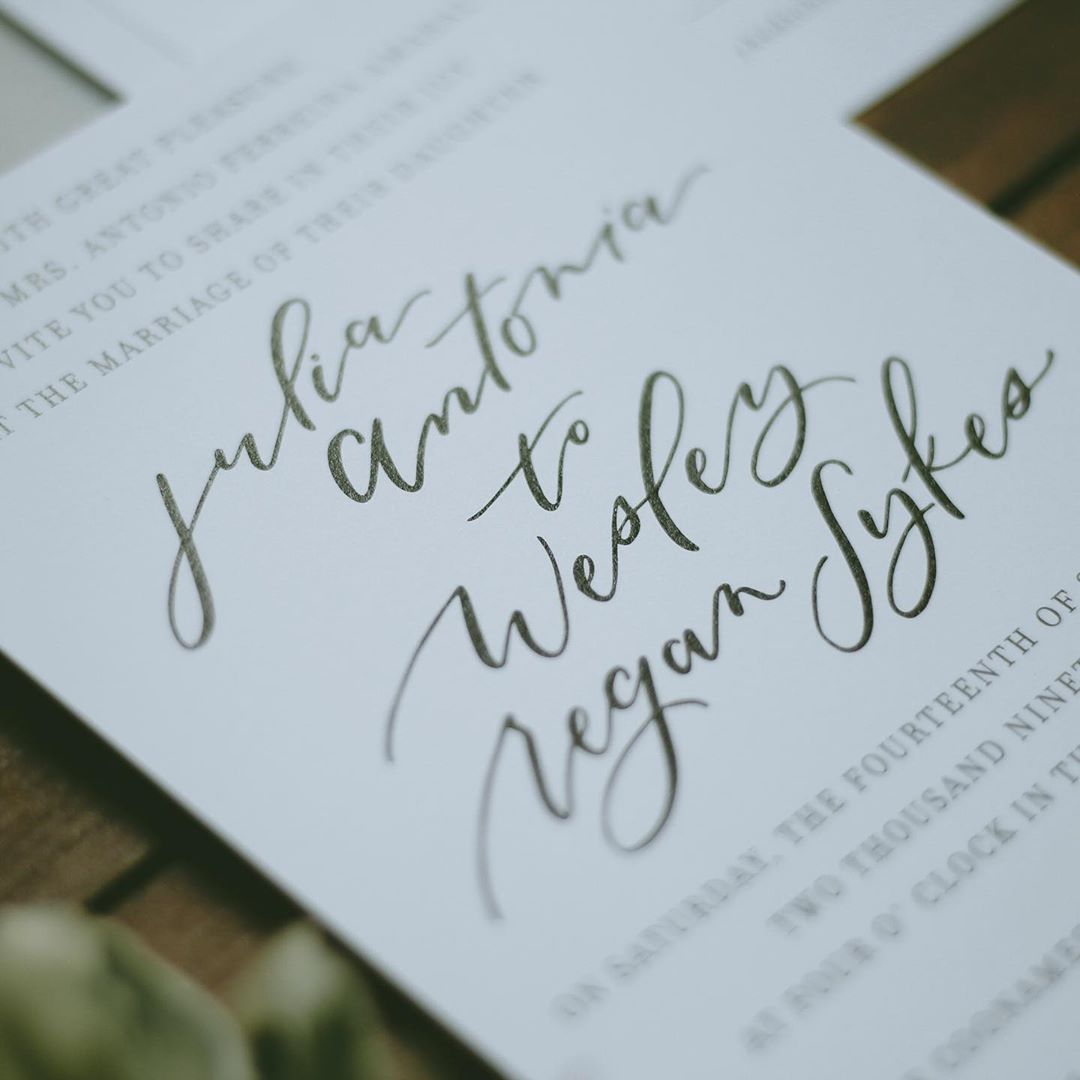 GREAT PLEASURE
MRS. ANTONIO FERREIRA
VITE YOU TO SHARE IN THEIR JOY
AT THE MARRIAGE OF THEIR DAUGHTER
Julia
Antonia
to
Wesley
Regan Sykes
ON SATURDAY, THE FOURTEENTH OF S
TWO THOUSAND NINET
AT FOUR O' CLOCK IN TH